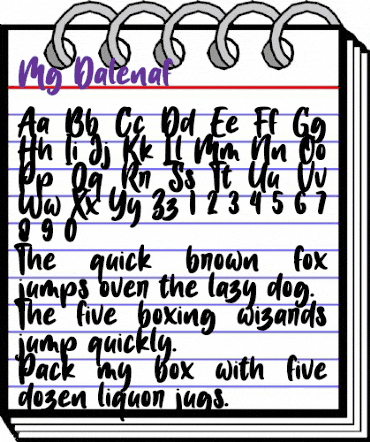 Mg Dalenaf
Aa Bb Cc Dd Ee Ff Gg
Hh Ii Jj Kk Ll Mm Nn Oo
Pp Qq Rr Ss Tt Uu Vv
Ww Xx Yy Zz 1 2 3 4 5 6 7
8 9 0
The quick brown fox
jumps over the lazy dog.
The five boxing wizards
jump quickly.
Pack my box with five
dozen liquor jugs.